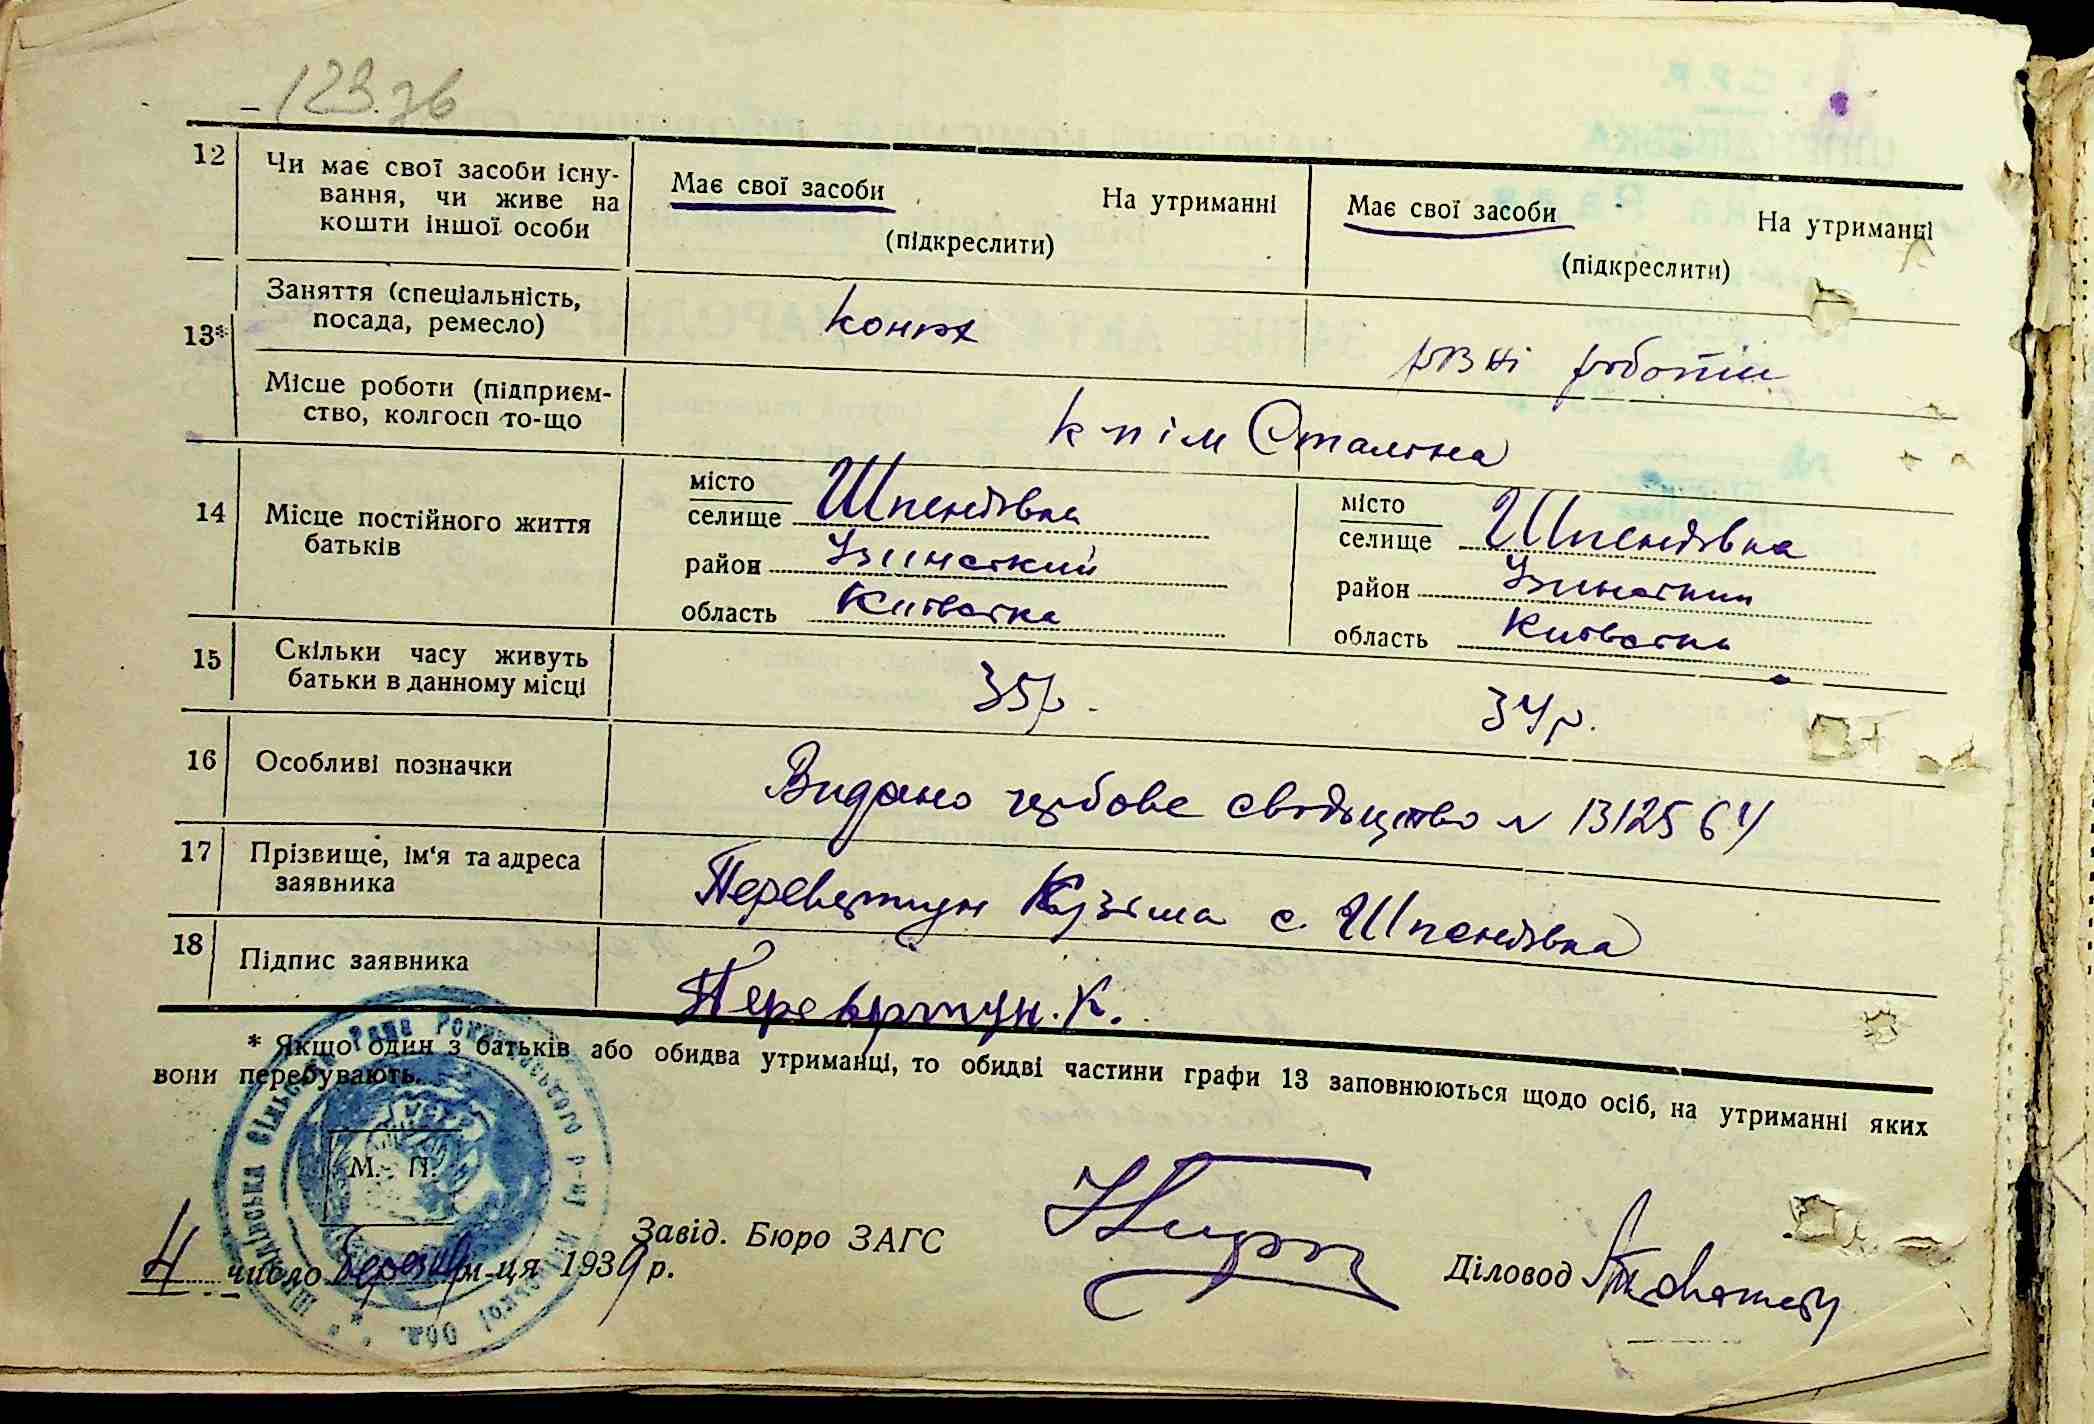 123 зв
12 Чи має свої засоби існу-
вання, чи живе на
кошти іншої особи
Має свої засоби На утриманні
(підкреслити)
Має свої засоби На утриманні
(підкреслити)
13* Заняття (спеціальність,
посада, ремесло)
конюх
різні роботи
Місце роботи (підприєм-
ство, колгосп то-що
к п ім Сталіна
14 Місце постійного життя
батьків
місто
селище Шпендівка
район Узинский
область Київська
місто
селище Шпендівка
район Узинский
область Київська
15 Скільки часу живуть
батьки в данному місці
35р.
34р.
16 Особливі позначки
Видано гербове свидоцтво № 1312564
17 Прізвище, ім'я та адреса
заявника
Перевертун Кузіма с. Шпендівка
18 Підпис заявника
Перевертун. К.
* Якщо один з батьків або обидва утриманці, то обидві частини графи 13 заповнюються щодо осіб, на утриманні яких
вони перебувають.
М. П.
4 число березня м-ця 1939 р.
Завід. Бюро ЗАГС
Діловод